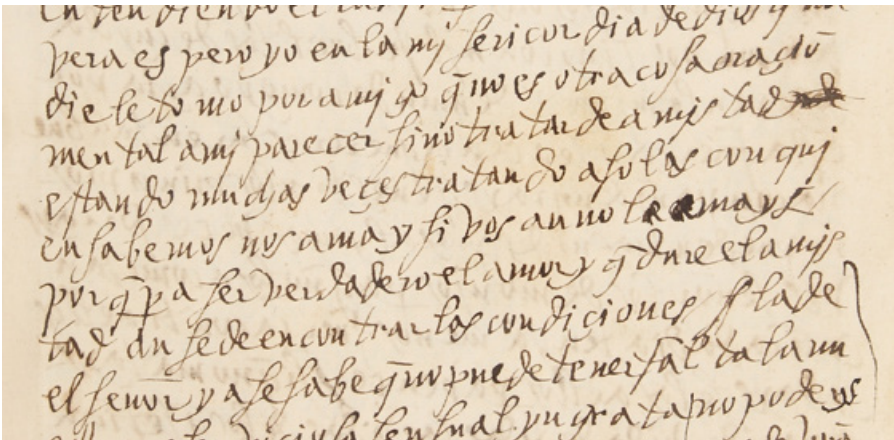 vera es pero yo en la mjsericordia de dios q̄
die le tomo por amjgo q̄ no es otra cosa oraciō
mental a mj parecer sino tratar de amjstad
estando muchas veçes tratando a solas con quj
en sabemos nos ama y si vos aun no le amays
por q̄ pa ser verdadero el amor y q̄ dure el amjs
tad an se de encontrar las condiciones la de
el señor ya se sabe q̄ no puede tener falta la nu
sensual yngrata no podeys